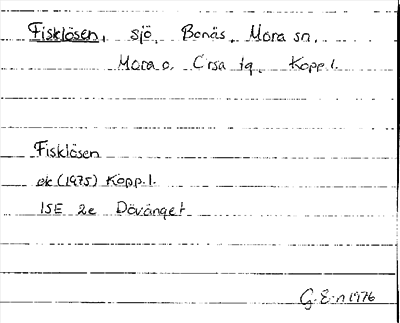 Fisklösen, sjö, Bonäs, Mora sn,
Mora o. Orsa tg, Kopp. l.
Fisklösen
ek (1975) Kopp. l.
15E 2e Dövänget
G. E:n 1976